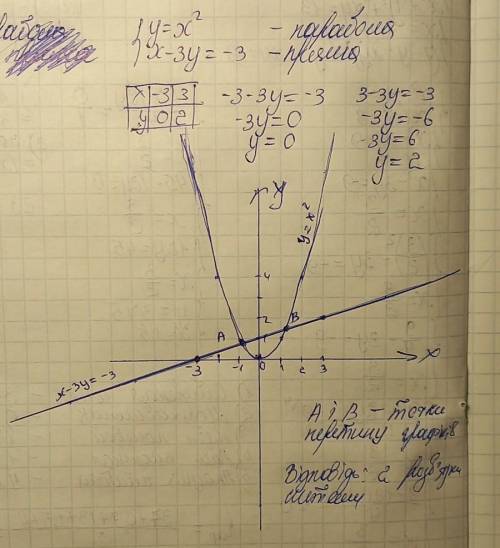 {y=x² - парабола
x-3y=-3 - пряма
x -3 3
y 0 2
-3-3y=-3
-3y=0
y=0
3-3y=-3
-3y=-6
-3y=6
y=2
y
y=x²
4
2
A
B
x-3y=-3
-3 -1 0 1 2 3
x
A і B - точки
перетину графіків
Відповідь: 2 розв'язки
системи